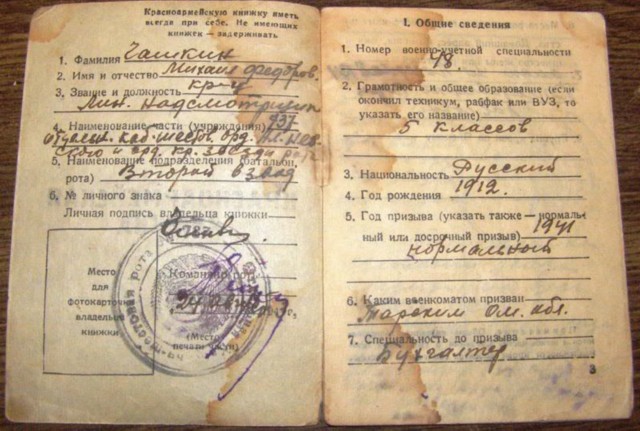 Красноармейскую книжку иметь
всегда при себе. Не имеющих
книжек — задерживать
1. Фамилия Чашкин
2. Имя и отчество Михаил Федоров.
3. Звание и должность кр-ц
Лин. Надсмотрщик
4. Наименование части (учреждения) 937
5. Наименование подразделения (батальон,
рота) Второй взвод
6. № личного знака
Личная подпись владельца книжки
Место
для
фотокарточки
владельца
книжки
Командир
24 август
(Место
печати части)
1. Общие сведения
1. Номер военно-учетной специальности
48.
2. Грамотность и общее образование (если
окончил техникум, рабфак или ВУЗ, то
указать его название)
5 классов
3. Национальность Русский
4. Год рождения 1912.
5. Год призыва (указать также — нормаль-
ный или досрочный призыв) 1941
нормальный
6. Каким военкоматом призван
Тарским Ом. обл.
7. Специальность до призыва
Бухгалтер
3